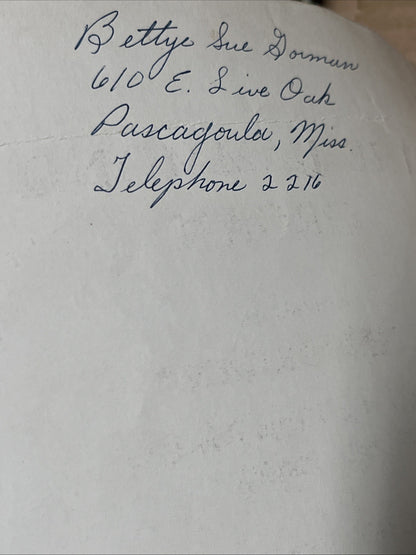 Bettye Sue Dorman
610 E. Live Oak
Pascagoula, Miss.
Telephone 2276